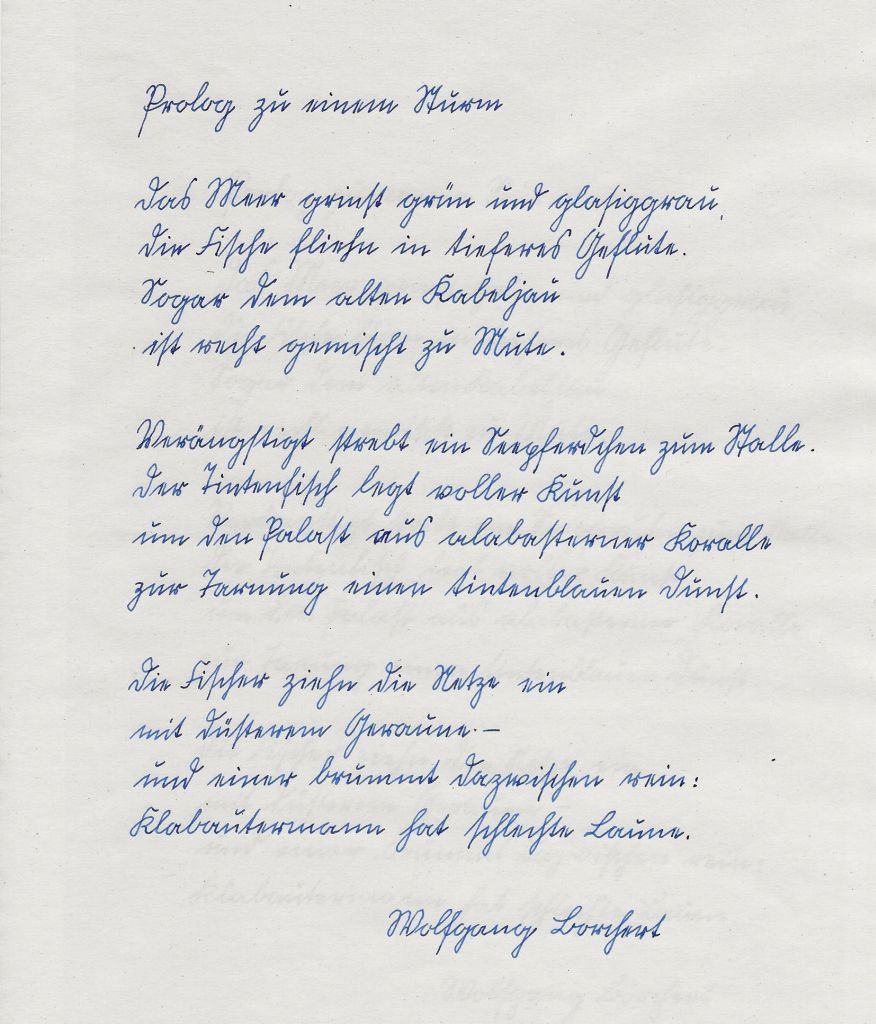 Prolog zu einem Sturm
Das Meer grinst grün und glasiggrau,
die Fische fliehn in tieferes Geflute.
Sogar dem alten Kabeljau
ist recht gemischt zu Mute.
Verängstigt strebt ein Seepferdchen zum Stalle.
Der Tintenfisch legt voller Kunst
um den Palast aus alabasterner Koralle
zur Tarnung einen tintenblauen Dunst.
Die Fischer ziehn die Netze ein
mit düsterem Geraune. –
und einer brummt dazwischen rein:
Klabautermann hat schlechte Laune.
Wolfgang Borchert